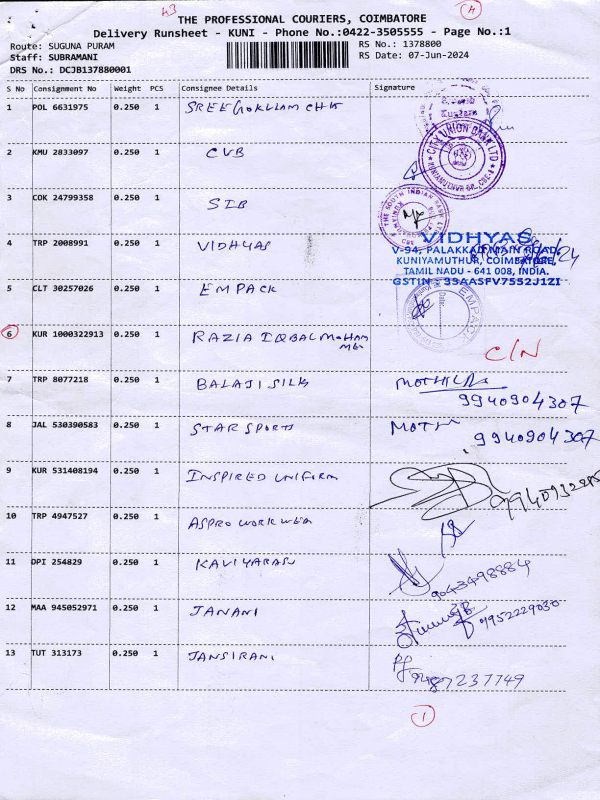 A3
THE PROFESSIONAL COURIERS, COIMBATORE
Delivery Runsheet - KUNI - Phone No.:0422-3505555 - Page No.:1
Route: SUGUNA PURAM
RS No.: 1378800
Staff: SUBRAMANI
RS Date: 07-Jun-2024
DRS No.: DCJB137880001
S No Consignment No Weight PCS Consignee Details Signature
1 POL 6631975 0.250 1 SREE GOKULAM CHIT
CITY UNION BANK LTD
2 KMU 2833097 0.250 1 CUB
3 COK 24799358 0.250 1 SIB
THE SOUTH INDIAN BANK LTD
4 TRP 2008991 0.250 1 VIDHYAS
VIDHYAS
94, PALAKKAD MAIN ROAD,
KUNIYAMUTHUR, COIMBATORE,
TAMIL NADU - 641 008, INDIA.
GSTIN - 33AASFV7552J1ZI
5 CLT 30257026 0.250 1 EMPACK
6 KUR 1000322913 0.250 1 RAZIA IQBAL MOHAM
MED
C/N
7 TRP 8077218 0.250 1 BALAJI SILK
9940904307
8 JAL 530390583 0.250 1 STAR SPORTS
9940904307
9 KUR 531408194 0.250 1 INSPIRED UNIFIRM
10 TRP 4947527 0.250 1 ASPRO WORK WEA
11 DPI 254829 0.250 1 KAVIYARASU
9043498884
12 MAA 945052971 0.250 1 JANANI
9952229030
13 TUT 313173 0.250 1 JANSIRANI
9487237749
1